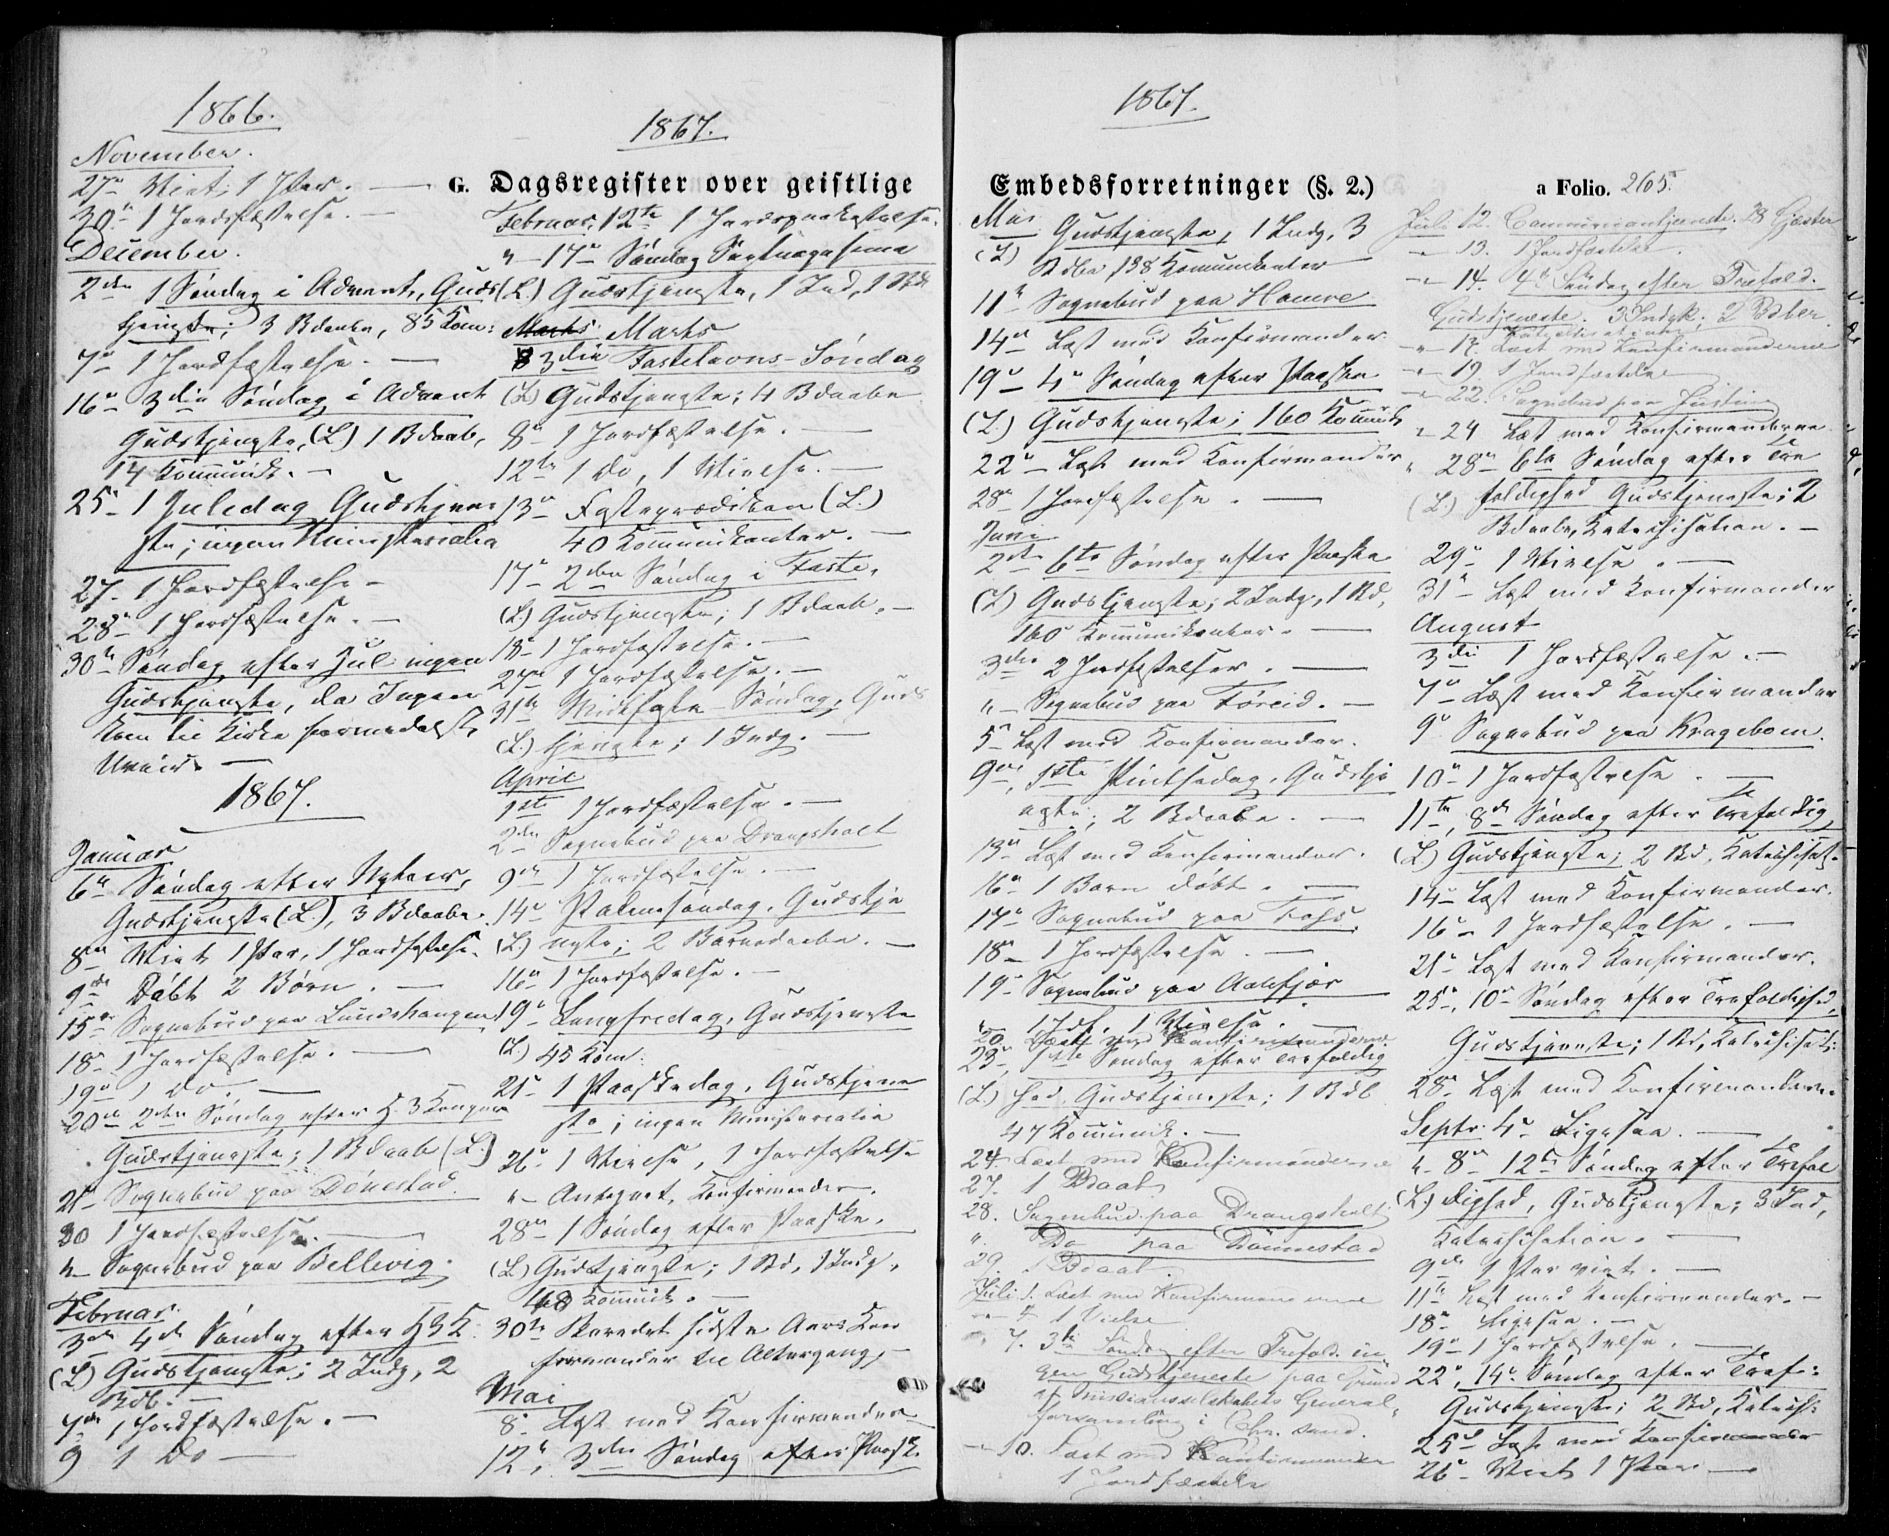 1866.
November.
27de Viet 1 Par. —
30te 1 Jordfæstelse. —
December.
2den 1 Søndag i Advent, Guds
tjeneste; 3 Bdaabe, 85 Kom:
7de 1 Jordfæstelse. —
16de 3die Søndag i Advent
Gudstjeneste, (L) 1 Bdaab,
14 Kommunik. —
25de 1 Juledag Gudstjene
ste; ingen Ministerialia
27. 1 Jordfæstelse —
28de 1 Jordfæstelse. —
30te Søndag efter Jul ingen
Gudstjeneste, da Ingen
kom til Kirke formedelst
Uveir. —
1867.
Januar
6te Søndag efter Nytaar,
Gudstjeneste (L.), 3 Bdaabe.
8de Viet 1 Par, 1 Jordfæstelse.
9de Døbt 2 Børn. —
15de Sognebud paa Lundshaugen
18de 1 Jordfæstelse. —
19de 1 Do. —
20de 2den Søndag efter H. 3 Konger
Gudstjeneste; 1 Bdaab (L.)
21de Sognebud paa Dønestad.
30 1 Jordfæstelse. —
"— Sognebud paa Bellevig.
Februar.
3die 4de Søndag efter H3K
(L) Gudstjeneste; 2 Indg, 2
Bdb. —
7de 1 Jordfæstelse. —
9 1 Do —
1867.
G. Dagsregister over geistlige
Februar, 12te 1 Jordspaakastelse.
"— 17de Søndag Septuagesima
(L.) Gudstjeneste, 1 Ind, 1 Bd
Marts. Marts
3die Fastelavns-Søndag
(L) Gudstjeneste; 4 Bdaabe
8de 1 Jordfæstelse. —
12te 1 Do, 1 Vielse. —
13de Fasteprædiken (L.)
40 Kommunikanter. —
17de 2den Søndag i Faste,
(L.) Gudstjeneste; 1 Bdaab. —
18de 1 Jordfæstelse. —
27de 1 Jordfæstelse. —
31te Midfaste Søndag, Guds
(L.) tjeneste; 1 Indg. —
April
1ste 1 Jordfæstelse. —
2den Sognebud paa Drangsholt
9de 1 Jordfæstelse. —
14de Palmesøndag, Gudstje
(L.) neste; 2 Barnedaabe. —
16de 1 Jordfæstelse. —
19de Langfredag, Gudstjeneste
(L.) 45 Kom:
21de 1 Paaskedag, Gudstjene
ste; ingen Ministerialia
26de 1 Vielse, 1 Jordfæstelse
"— Antegnet, Konfirmander.
28de 1 Søndag efter Paaske,
(L) Gudstjeneste; 1 Bd, 1 Indg,
48 Kommunik. —
30te Beredet sidste Aars Kon
firmander til Altergang, —
Mai
8de Læst med Konfirmander
12te, 3die Søndag efter Paaske
1867.
Embedsforretninger (§. 2.)
Mai Gudstjeneste, 1 Indg, 3
(L) Bdbe 138 Komunikanter
11te Sognebud paa Hamre
14de Læst med Konfirmander
19de 4de Søndag efter Paaske
(L.) Gudstjeneste; 160 Kommunik
22de Læst med Konfirmander
28de 1 Jordfæstelse. —
Juni
2den 6te Søndag efter Paaske
(L) Gudstjeneste; 2 Indg, 1 Bd,
160 Kommunikanter. —
3die 2 Jordfæstelser. —
"— Sognebud paa Føreid. —
5te Læst med Konfirmander.
9de, 1ste Pintsedag, Gudstje
neste; 2 Bdaabe. —
13de Læst med Konfirmander.
16de 1 Barn døbt. —
17de Sognebud paa Foss.
18de 1 Jordfæstelse. —
19de Sognebud paa Aalefjær
"— 1 Jdf. 1 Vielse. —
20 Læst med Konfirmanderne
23de 1ste Søndag efter Trefoldig
(L.) hed, Gudstjeneste; 1 Bdb
47 Kommunik. —
24. Læst med Konfirmanderne
27. 1 Bdaab
28. Sognebud paa Drangsholt
". Do paa Dønnestad
29. 1 Bdaab
Juli 1. Læst med Konfirmanderne
"— 4 1 Vielse
7. 3die Søndag efter Trefold. in
gen Gudstjeneste paa Grund
af Missionsselskabets General-
forsamling i Chr.sand.
"— 10. Læst med Konfirmander
1 Jordfæstelse
a Folio. 265.
Juli 12. Communiontjeneste. 28 Gjæster
"— 13. 1 Jordfæstelse.
"— 14. 4de Søndag efter Trefold.
Gudstjeneste. 3 Indgk; 2 Bdber
"— 17. Læst med Konfirmanderne
"— 19 1 Jordfæstelse
"— 22. Sognebud paa
"— 24 Læst med Konfirmanderne
" 28de 6te Søndag efter Tre
(L.) foldighed Gudstjeneste; 2
Bdaabe, Katechisation. —
29de 1 Vielse. —
31te Læst med Konfirmander
August
3die 1 Jordfæstelse. —
7de Læst med Konfirmander
9de Sognebud paa Kragebom.
10de 1 Jordfæstelse. —
11te, 8de Søndag efter Trefoldig
(L) Gudstjeneste; 2 Bd, Katechisat.
14de Læst med Konfirmander.
16de 1 Jordfæstelse. —
21de Læst med Konfirmander.
25de, 10de Søndag efter Trefoldighed,
Gudstjeneste; 1 Bd, Katechisat:
28de Læst med Konfirmanderne.
Septr. 4de Ligesaa. —
"— 8de 12te Søndag efter Trefol
(L.) dighed, Gudstjeneste; 3 Ind,
Katechisation. —
9de 1 Par viet. —
11te Læst med Konfirmander. —
18de Ligesaa. —
19de 1 Jordfæstelse. —
22de, 14de Søndag efter Trefo:
Gudstjeneste; 2 Bd, Katechis:
25de Læst med Konfirmander
26de Viet 1 Par —